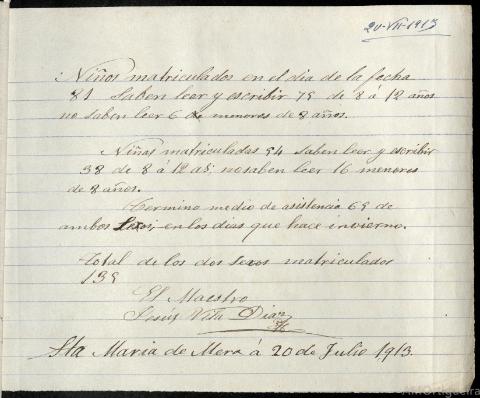 20-VII-1913
Niños matriculados en el dia de la fecha
81 Saben leer y escribir 75 de 8 á 12 años
no saben leer 6 de menores de 8 años.
Niñas matriculadas 54 saben leer y escribir
38 de 8 á 12 as; no saben leer 16 menores
de 8 años.
Termino medio de asistencia 65 de
ambos sexos, en los dias que hace invierno.
total de los dos sexos matriculados
135
El Maestro
Jesús Vita Diaz
Sta Maria de Mera á 20 de Julio 1,913.
AMOrtigueira